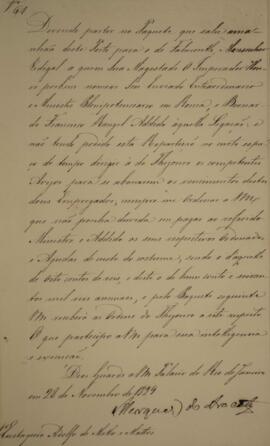 Nº 41
Devendo partir no Paquete que sahe ama-
nhãa deste Porto para o de Falmouth, Monsenhor
Vidigal a quem Sua Magestade O Imperador Hou-
ve por bem nomear Seu Enviado Extraordinario
e Ministro Plenipotenciario em Roma, e Bernar-
do Francisco Rangel Addido áquella Legação, e
não tendo podido esta Repartição no meio espa-
ço de tempo dirigir á do Thesouro os competentes
Avizos para se abonarem os vencimentos destes
dous Empregados, cumpre-me Ordenar a V.M.ce
que não ponha duvida em pagar ao referido
Ministro e Addido os seus respectivos Ordenados
e Ajudas de custo do costume, sendo o daquelle
de oito contos de reis, e deste o de hum conto e
mil reis annuaes, e pelo Paquete seguinte
V.M. receberá as Ordens do Thesouro a este respeito
O que participo a V.M. para sua intelligencia
e execução.
Deos Guarde a V.M. Palacio do Rio de Janeiro
em 28 de Novembro de 1829
Marquez do Aracaty
Sr. Eustaquio Adolfo de Mello e Mattos